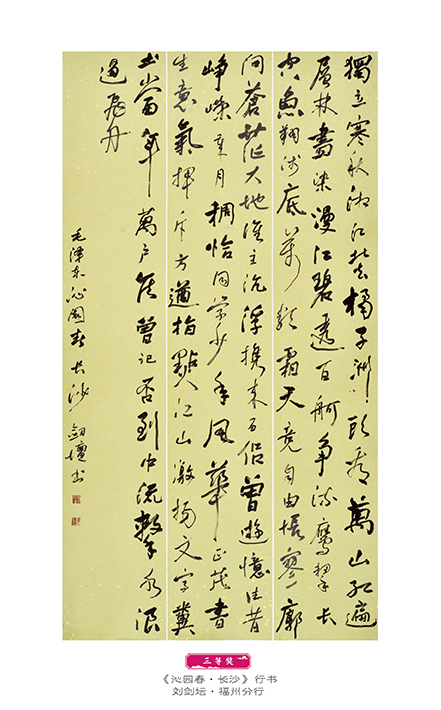 獨立寒秋湘江北去橘子洲頭看萬山紅遍
層林盡染漫江碧透百舸爭流鷹擊長
空魚翔淺底萬類霜天競自由悵寥廓
問蒼茫大地誰主沉浮攜來百侶曾遊憶往昔
崢嶸歲月稠恰同學少年風華正茂書
生意氣揮斥方遒指點江山激揚文字糞
土當年萬戶侯曾記否到中流擊水浪
遏飛舟
毛澤東沁園春長沙 劍壇書
三等奖
《沁园春·长沙》行书
刘剑坛·福州分行